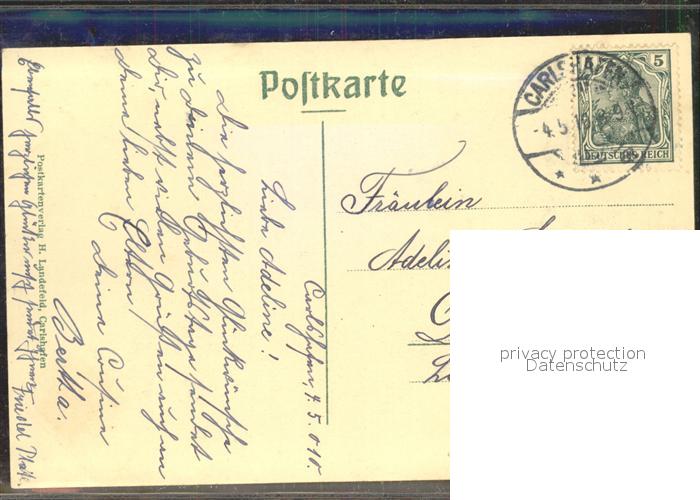 Postkarte
CARLSHAFEN
4.5.10
5
DEUTSCHES REICH
Fräulein
Adeli
Carlshafen, 4.5.010.
Liebe Adeline!
Die herzlichsten Glückwünsche
zu Deinem Geburtstage sendet
Dir, nebst vielen Grüßen auch an
Deine lieben Eltern
Deine Cousine
Bertha.
Postkartenverlag H. Landefeld, Carlshafen
privacy protection
Datenschutz